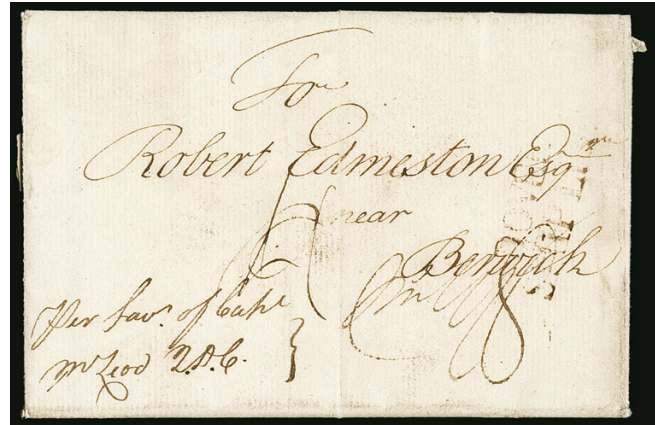 For
Robert Edmeston Esqr
near
Berwick
Per favr. of Capt
McLeod 2.D.C.
DOVER